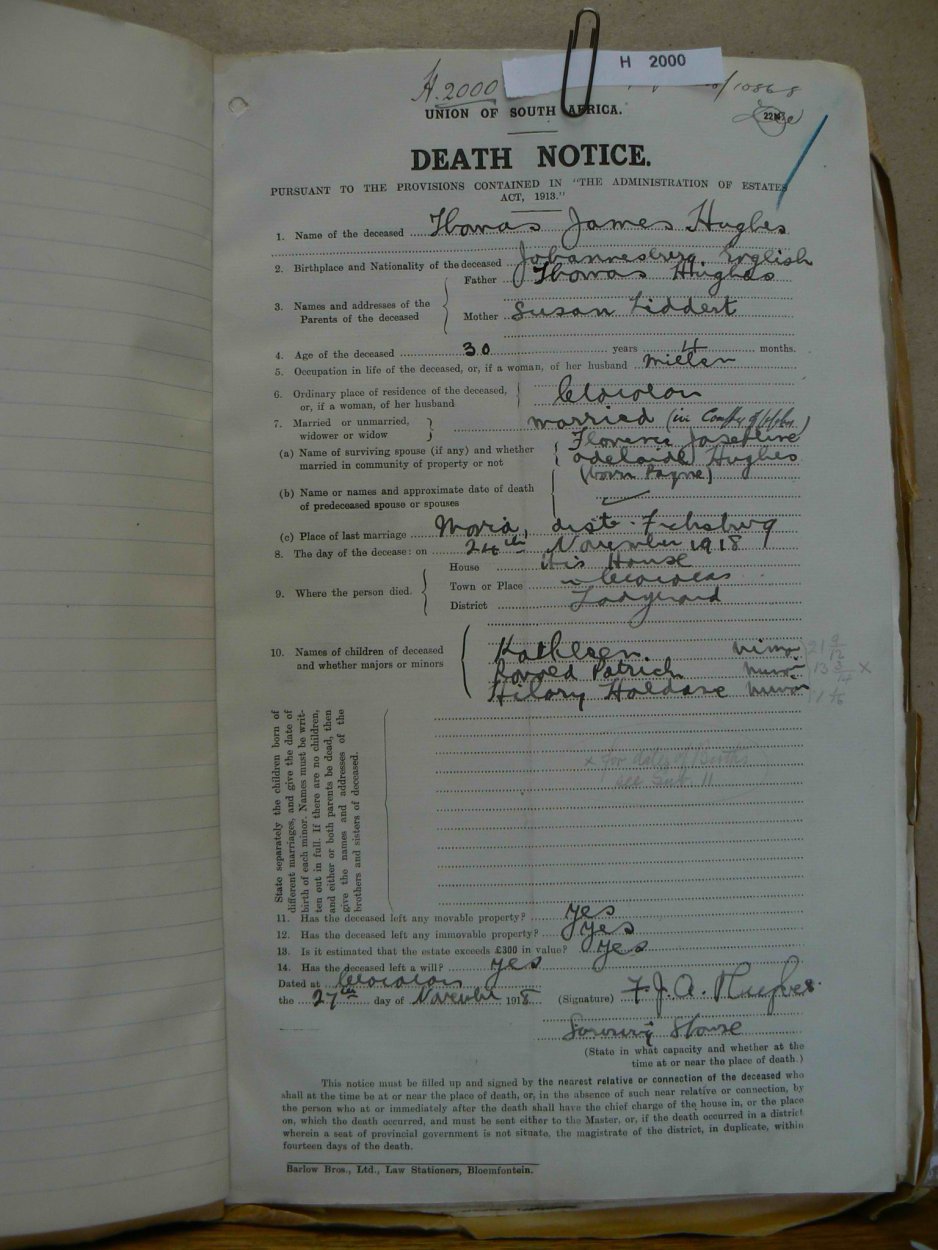 H.2000
H 2000
/10868
UNION OF SOUTH AFRICA.
DEATH NOTICE.
PURSUANT TO THE PROVISIONS CONTAINED IN "THE ADMINISTRATION OF ESTATES
ACT, 1913."
1. Name of the deceased Thomas James Hughes
2. Birthplace and Nationality of the deceased Johannesburg. English
3. Names and addresses of the
Parents of the deceased
Father Thomas Hughes
Mother Susan Liddert
4. Age of the deceased 30 years 4 months.
5. Occupation in life of the deceased, or, if a woman, of her husband
6. Ordinary place of residence of the deceased,
or, if a woman, of her husband Clocolan
7. Married or unmarried,
widower or widow
married (in
(a) Name of surviving spouse (if any) and whether
married in community of property or not
Florence Josephine
Adelaide Hughes
(born Payne)
(b) Name or names and approximate date of death
of predeceased spouse or spouses
(c) Place of last marriage Moria, distr. Ficksburg
8. The day of the decease: on 24th November 1918
9. Where the person died.
House His House
Town or Place Clocolan
District Ladybrand
10. Names of children of deceased
and whether majors or minors
Kathleen. minor
Ronald Patrick minor
Hilary Haldane minor
x for dates of Births
see 11
State separately the children born of
different marriages, and give the date of
birth of each minor. Names must be writ-
ten out in full. If there are no children,
and either or both parents be dead, then
give the names and addresses of the
brothers and sisters of deceased.
11. Has the deceased left any movable property? yes
12. Has the deceased left any immovable property? yes
13. Is it estimated that the estate exceeds £300 in value? yes
14. Has the deceased left a will? yes
Dated at Clocolan
the 27th day of November 1918
(Signature) F. J. A. Hughes.
Spouse
(State in what capacity and whether at the
time at or near the place of death.)
This notice must be filled up and signed by the nearest relative or connection of the deceased who
shall at the time be at or near the place of death, or, in the absence of such near relative or connection, by
the person who at or immediately after the death shall have the chief charge of the house in, or the place
on, which the death occurred, and must be sent either to the Master, or, if the death occurred in a district
wherein a seat of provincial government is not situate, the magistrate of the district, in duplicate, within
fourteen days of the death.
Barlow Bros., Ltd., Law Stationers, Bloemfontein.